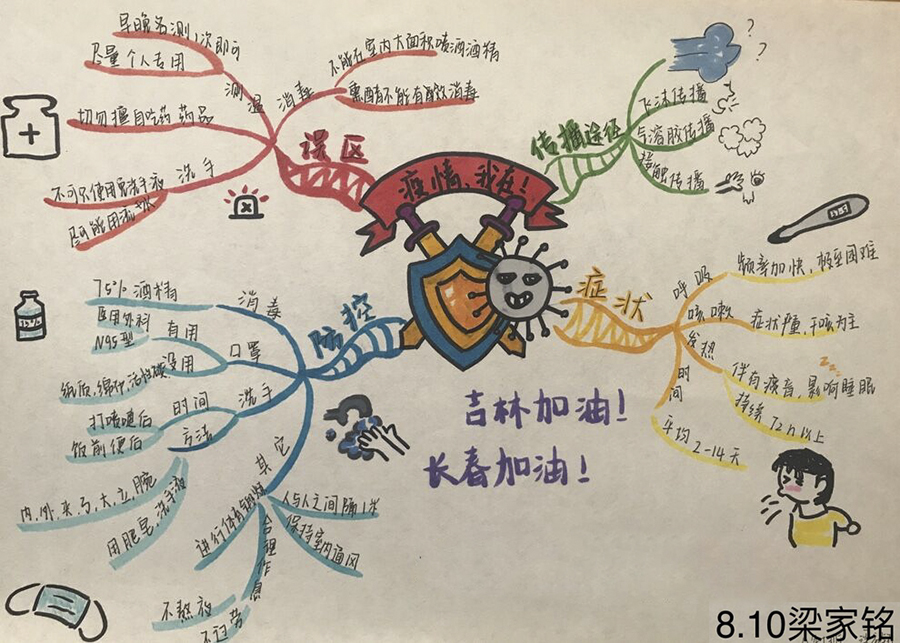 疫情,我在!
误区
测温
早晚各测1次即可
尽量个人专用
切勿擅自吃药
药品
洗手
不可只使用免洗手液
尽可能用流水
消毒
不能在室内大面积喷洒酒精
熏醋不能有效消毒
传播途径
飞沫传播
气溶胶传播
接触传播
症状
呼吸
频率加快,极至困难
咳嗽
症状严重,干咳为主
发热
伴有演音,影响睡眠
持续72h以上
时间
平均2-14天
防控
消毒
75%酒精
口罩
有用
医用外科
N95型
没用
纸质,绵布,活性碳
洗手
时间
打喷嚏后
饭前便后
方法
内,外,夹,弓,大,立,腕
用肥皂,洗手液
其它
进行体育锻炼
合理作息
不熬夜
不过劳
人与人之间隔1米
保持室内通风
吉林加油!
长春加油!
8.10梁家铭